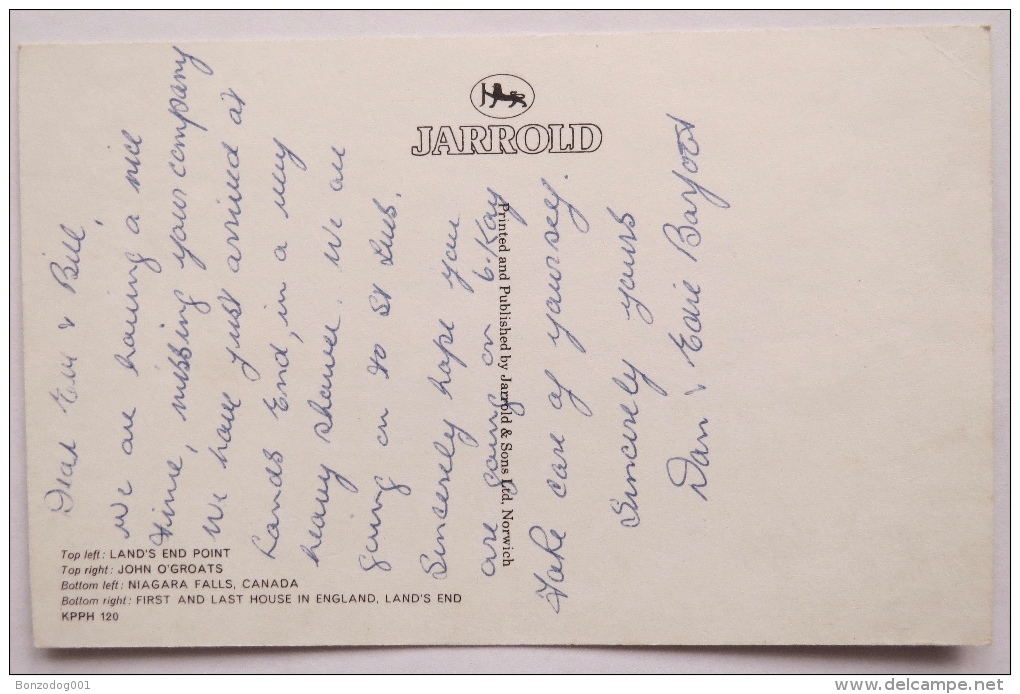 JARROLD
Printed and Published by Jarrold & Sons Ltd, Norwich
Dear Eve & Bill,
We are having a nice
time, missing your company
We have just arrived at
Lands End, in a very
heavy shower. We are
going on to St Ives.
Sincerely hope you
are going on O.Kay
Take care of yourself.
Sincerely yours
Dan & Edie
Top left: LAND'S END POINT
Top right: JOHN O'GROATS
Bottom left: NIAGARA FALLS, CANADA
Bottom right: FIRST AND LAST HOUSE IN ENGLAND, LAND'S END
KPPH 120
Bonzodog001
www.delcampe.net